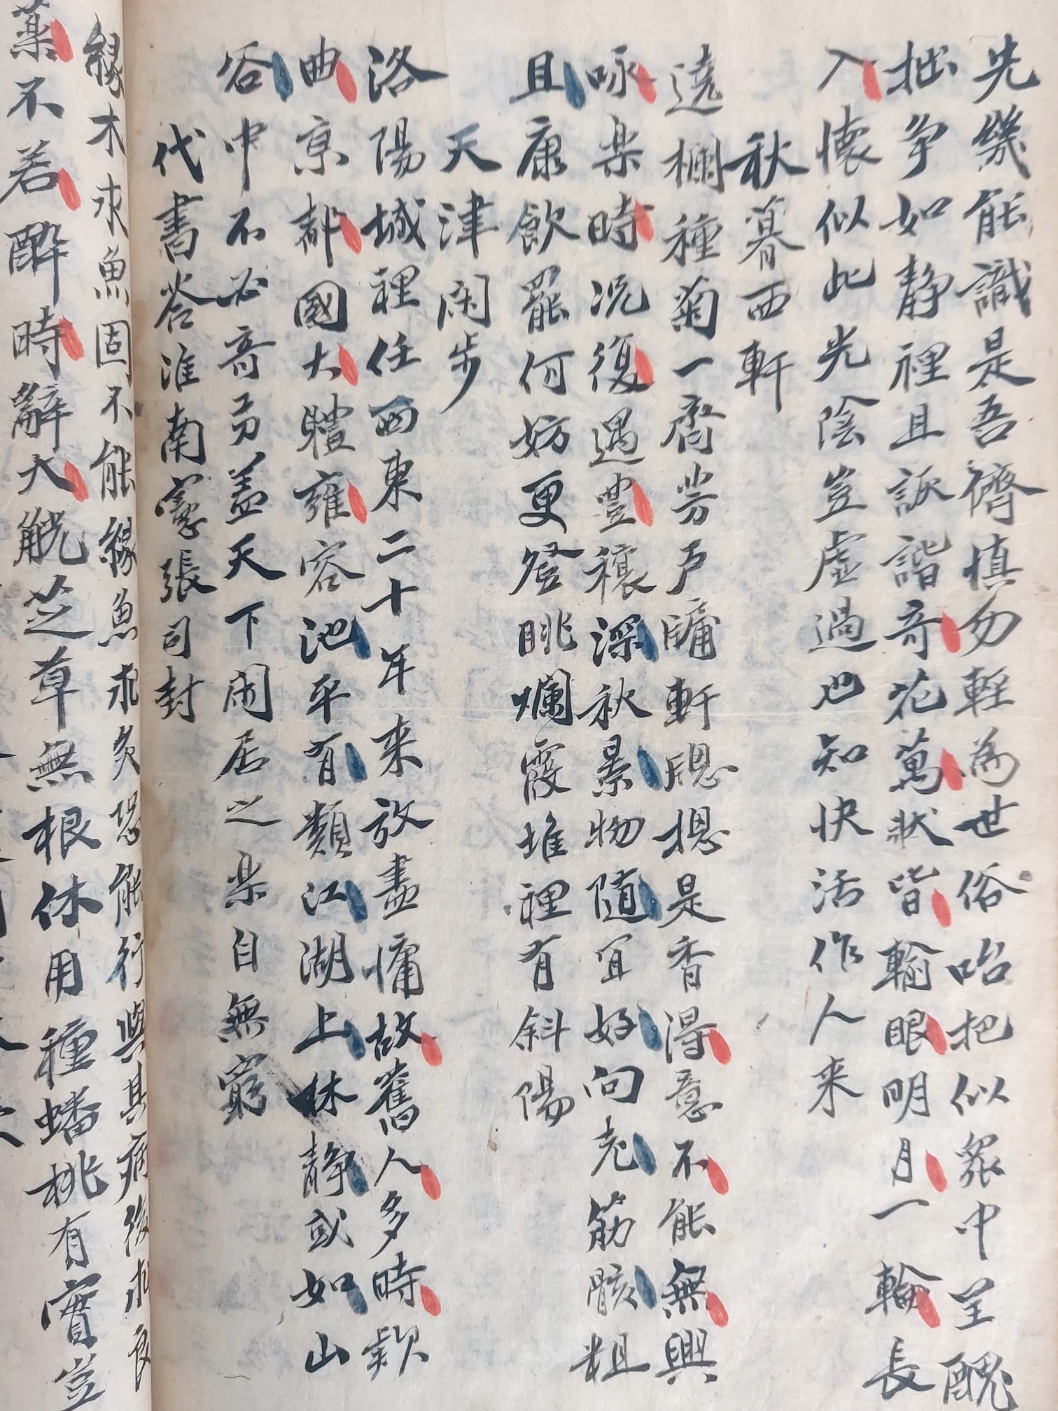 先幾能識是吾儕慎勿輕為世俗咍把似衆中呈醜
拙争如静裡且詼諧奇花萬状皆輸眼明月一輪長
入懐似此光陰豈虚過也知快活作人来
秋暮西軒
遶欄種菊一齊芳戸牖軒窓揔是香得意不能無興
咏樂時况復遇豊穰深秋景物随宜好向老筋骸粗
且康飲罷何妨更登眺爛霞堆裡有斜陽
天津閑歩
洛陽城裡任西東二十年来放盡慵故舊人多時欵
曲京都國大體雍容池平有類江湖上林静或如山
谷中不必奇功蓋天下閑居之樂自無窮
代書答淮南憲張司封
緣木求魚固不能緣魚求炙恐能行與其病後求良
藥不若醉時辭大觥芝草無根休用種蟠桃有實豈